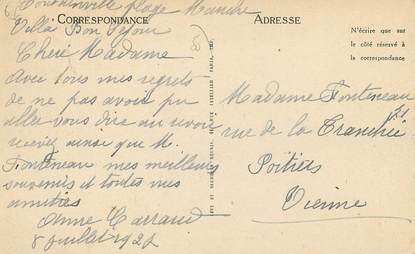 plage Manche
CORRESPONDANCE
Villa Bon Séjour
Chère Madame
Avec tous mes regrets
de ne pas avoir pu
aller vous dire au revoir
recevez ainsi que M.
Fonteneau mes meilleurs
souvenirs et toutes mes
amitiés
Anne
8 juillet 192
ADRESSE
N'écrire que sur
le côté réservé à
la correspondance
Madame Fonteneau
rue de la Tranchée
Poitiers
Vienne